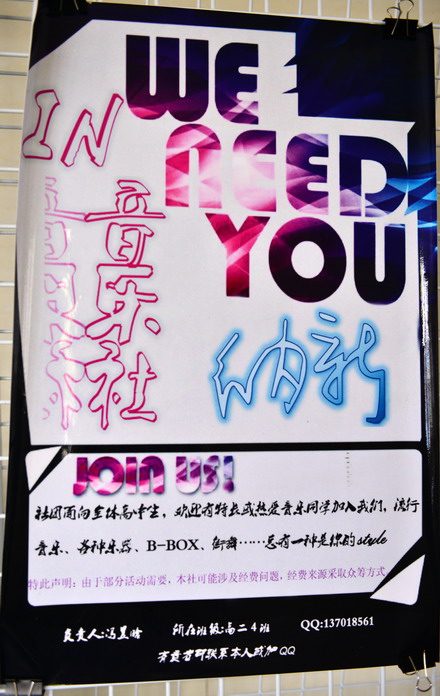 WE
NEED
YOU
IN
音乐社
纳新
JOIN US!
社团面向全体高中生，欢迎有特长或热爱音乐同学加入我们，流行
音乐、各种乐器、B-BOX、街舞……总有一种是你的style
特此声明：由于部分活动需要，本社可能涉及经费问题，经费来源采取众筹方式
负责人：冯昱晴 所在班级：高二4班 QQ:137018561
有意者可联系本人或加QQ